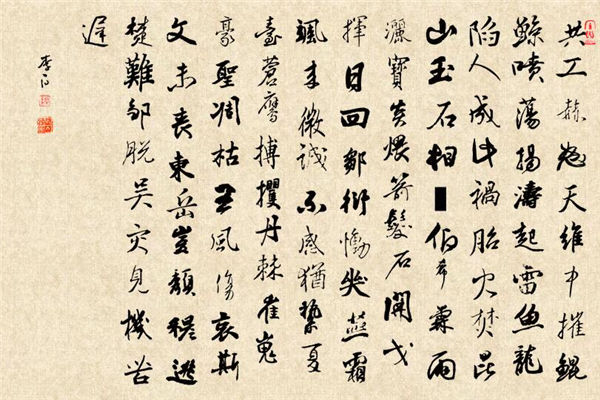 共工赫怒天維中摧鯤
鯨噴蕩揚濤起雷魚龍
陷人成此禍胎火焚昆
山玉石相■仰希霖雨
灑寶炎煨箭髮石開戈
揮日回鄒衍慟哭燕霜
颯来微誠不感猶縶夏
臺蒼鷹搏攫丹棘崔嵬
豪聖凋枯王風傷哀斯
文未喪東岳豈頹穆逃
楚難鄒脱吴灾見機苦
遲
李白